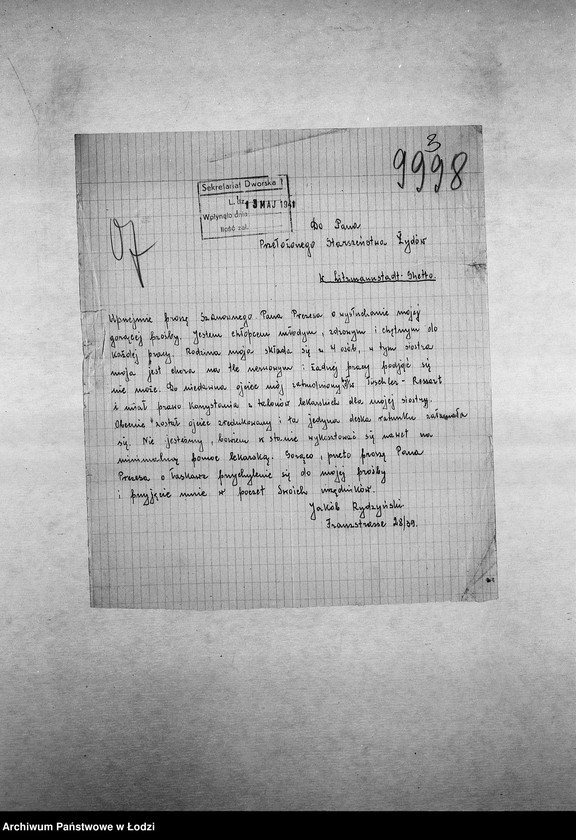 3
9998
Sekretariat Dworska 1
L. dz.
Wpłynęło dnia 13 MAJ 1941
Ilość zał.
Do Pana
Przełożonego Starszeństwa Żydów
w Litzmannstadt-Ghetto.
Uprzejmie proszę Szanownego Pana Prezesa o wysłuchanie mojej
gorącej prośby. Jestem chłopcem młodym, zdrowym i chętnym do
każdej pracy. Rodzina moja składa się z 4 osób, w tym siostra
moja jest chora na tle nerwowym i żadnej pracy podjąć się
nie może. Do niedawna ojciec mój zatrudniony w Tischler-Ressort
i miał prawo korzystania z talonów lekarskich dla mojej siostry.
Obecnie został ojciec zredukowany i ta jedyna deska ratunku załamała
się. Nie jesteśmy, bowiem w stanie wykosztować się nawet na
minimalną pomoc lekarską. Gorąco, przeto proszę Pana
Prezesa o łaskawe przychylenie się do mojej prośby
i przyjęcie mnie w poczet Swoich urzędników.
Jakób Rydzyński
Franzstrasse 28/39.
Archiwum Państwowe w Łodzi